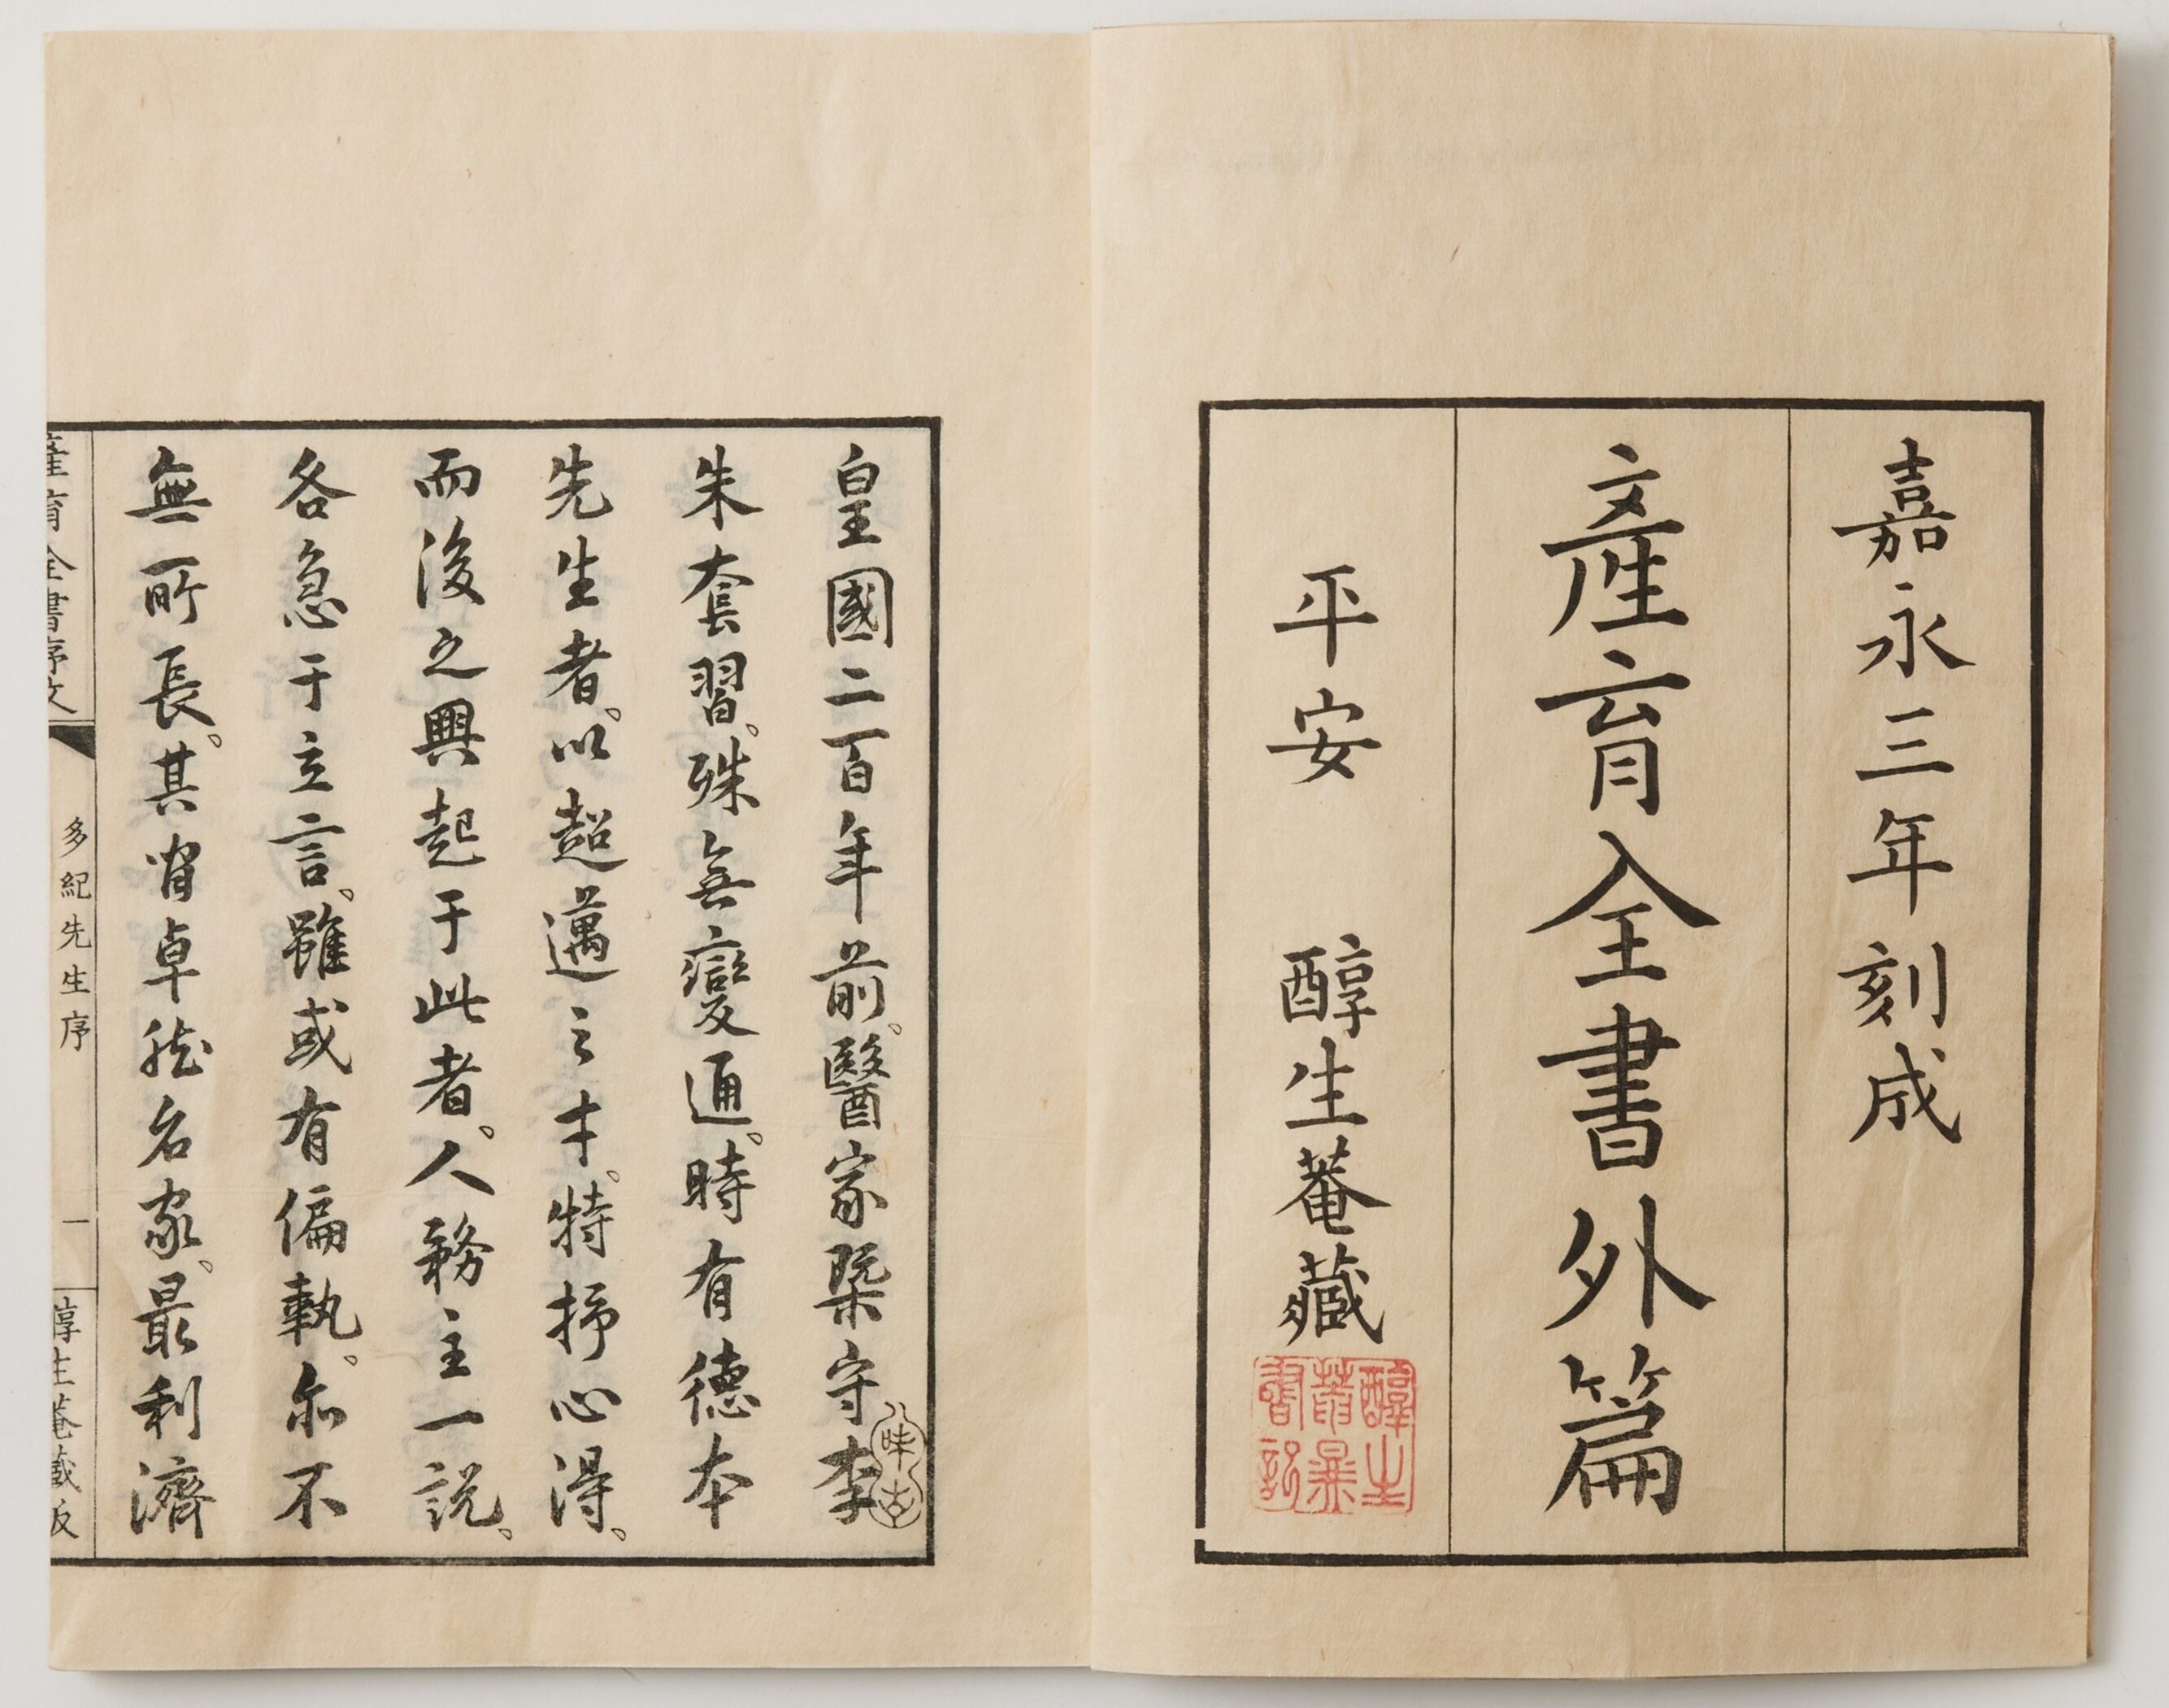 嘉永三年刻成
產育全書外篇
平安 醇生菴藏
皇國二百年前。醫家槩守李
朱套習。殊無變通。時有德本
先生者。以超邁之才。特抒心得。
而後之興起于此者。人務主一説。
各急于立言。雖或有偏執。尓不
無所長。其省卓然名家。最利濟
產育全書序文
多紀先生序
一
醇生菴藏版